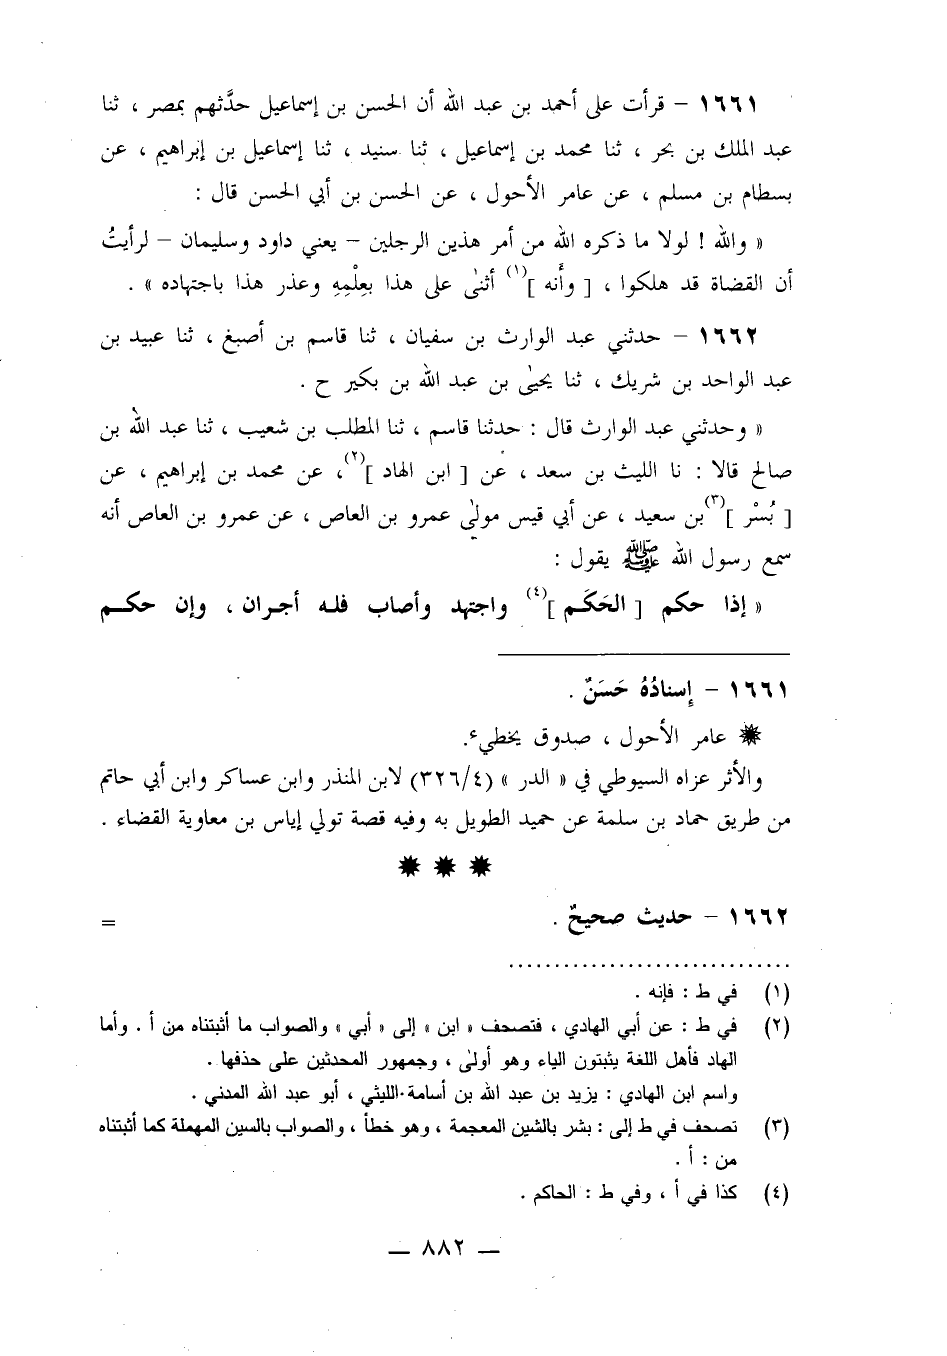 ١٦٦١ – قرأت على أحمد بن عبد الله أن الحسن بن إسماعيل حدَّثهم بمصر ، ثنا
عبد الملك بن بحر ، ثنا محمد بن إسماعيل ، ثنا سنيد ، ثنا إسماعيل بن إبراهيم ، عن
بسطام بن مسلم ، عن عامر الأحول ، عن الحسن بن أبي الحسن قال :
« والله ! لولا ما ذكره الله من أمر هذين الرجلين – يعني داود وسليمان – لرأيتُ
أن القضاة قد هلكوا ، [ وأنه ](١) أثنىٰ على هذا بعِلْمِهِ وعذر هذا باجتهاده » .
١٦٦٢ – حدثني عبد الوارث بن سفيان ، ثنا قاسم بن أصبغ ، ثنا عبيد بن
عبد الواحد بن شريك ، ثنا يحيىٰ بن عبد الله بن بكير ح .
« وحدثني عبد الوارث قال : حدثنا قاسم ، ثنا المطلب بن شعيب ، ثنا عبد الله بن
صالح قالا : نا الليث بن سعد ، عن [ ابن الهاد ](٢)، عن محمد بن إبراهيم ، عن
[ بُسْر ](٣)بن سعيد ، عن أبي قيس مولىٰ عمرو بن العاص ، عن عمرو بن العاص أنه
سمع رسول الله ﷺ يقول :
« إذا حكم [ الحَكَم ](٤) واجتهد وأصاب فله أجران ، وإن حكم
١٦٦١ – إسنادُهُ حَسَنٌ .
✸ عامر الأحول ، صدوق يخطيء.
والأثر عزاه السيوطي في « الدر » (٣٢٦/٤) لابن المنذر وابن عساكر وابن أبي حاتم
من طريق حماد بن سلمة عن حميد الطويل به وفيه قصة تولي إياس بن معاوية القضاء .
✸ ✸ ✸
١٦٦٢ – حديث صحيحٌ . =
(١) في ط : فإنه .
(٢) في ط : عن أبي الهادي ، فتصحف « ابن » إلى « أبي » والصواب ما أثبتناه من أ . وأما
الهاد فأهل اللغة يثبتون الياء وهو أولىٰ ، وجمهور المحدثين على حذفها .
واسم ابن الهادي : يزيد بن عبد الله بن أسامة الليثي ، أبو عبد الله المدني .
(٣) تصحف في ط إلى : بشر بالشين المعجمة ، وهو خطأ ، والصواب بالسين المهملة كما أثبتناه
من : أ .
(٤) كذا في أ ، وفي ط : الحاكم .
— ٨٨٢ —